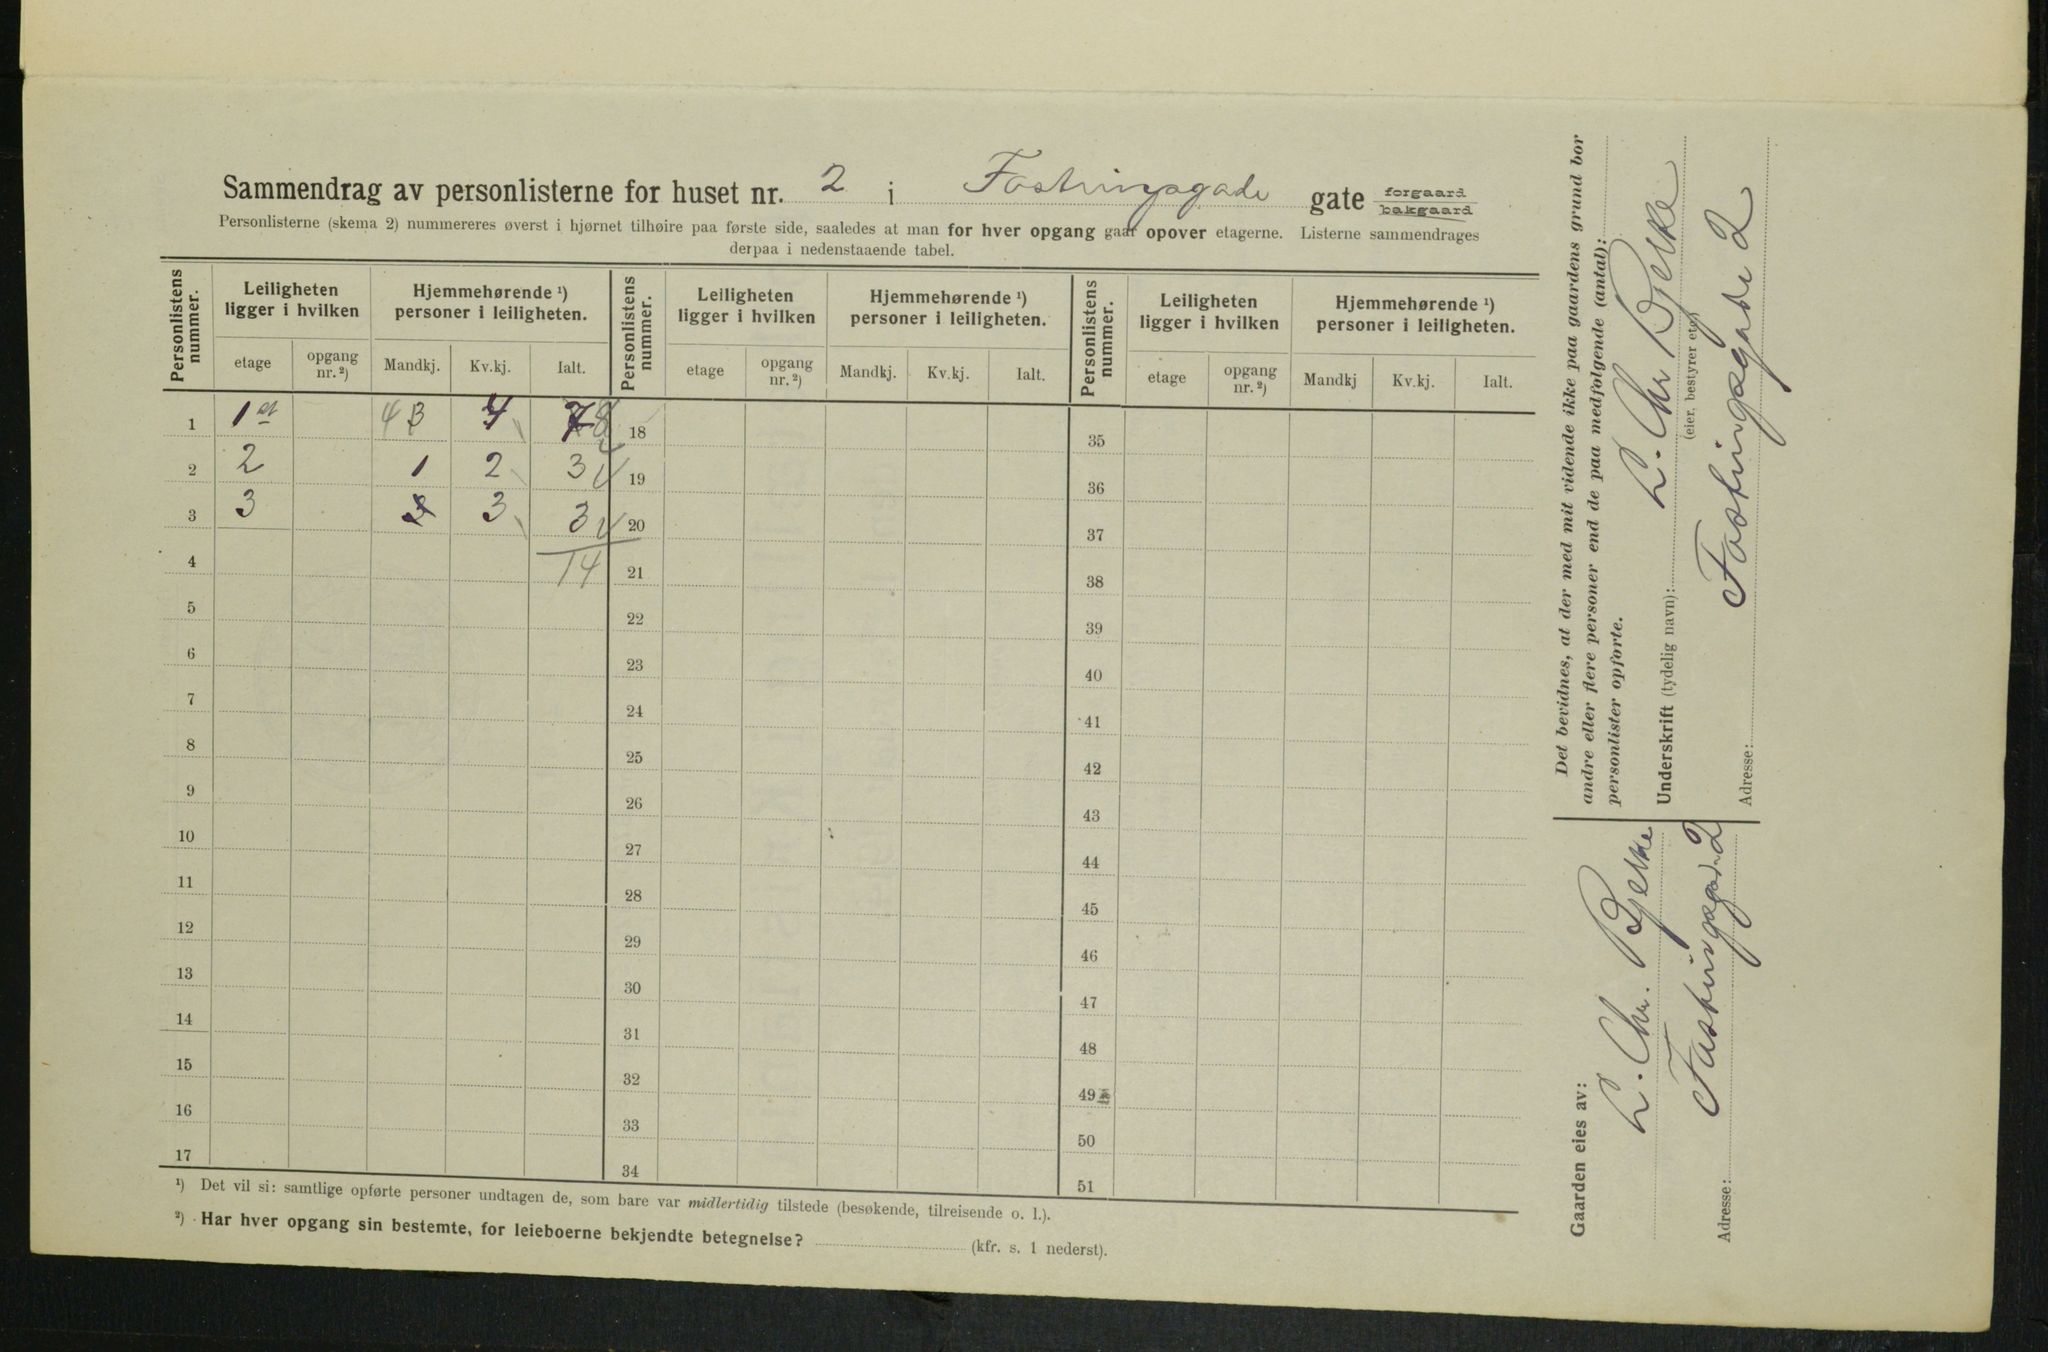 Sammendrag av personlisterne for huset nr. 2 i Fastingsgade gate forgaard bakgaard
Personlisterne (skema 2) nummereres øverst i hjørnet tilhøire paa første side, saaledes at man for hver opgang gaar opover etagerne. Listerne sammendrages
derpaa i nedenstaaende tabel.
Personlistens nummer. Leiligheten ligger i hvilken Hjemmehørende ¹) personer i leiligheten. Personlistens nummer. Leiligheten ligger i hvilken Hjemmehørende ¹) personer i leiligheten. Personlistens nummer. Leiligheten ligger i hvilken Hjemmehørende ¹) personer i leiligheten.
etage opgang nr. ²) Mandkj. Kv.kj. Ialt. etage opgang nr. ²) Mandkj. Kv.kj. Ialt. etage opgang nr. ²) Mandkj Kv.kj. Ialt.
1 1 et 4 3 4 7 8 18 35
2 2 1 2 3 19 36
3 3 3 3 20 37
4 14 21 38
5 22 39
6 23 40
7 24 41
8 25 42
9 26 43
10 27 44
11 28 45
12 29 46
13 30 47
14 31 48
15 32 49
16 33 50
17 34 51
¹) Det vil si: samtlige opførte personer undtagen de, som bare var midlertidig tilstede (besøkende, tilreisende o. l.).
²) Har hver opgang sin bestemte, for leieboerne bekjendte betegnelse? (kfr. s. 1 nederst).
Det bevidnes, at der med mit vidende ikke paa gaardens grund bor
andre eller flere personer end de paa medfølgende (antal):
personlister opførte.
Underskrift (tydelig navn): L. Chr Bjelke
(eier, bestyrer etc.)
Adresse: Fastingsgade 2
Gaarden eies av: L. Chr. Bjelke
Adresse: Fastingsgad. 2